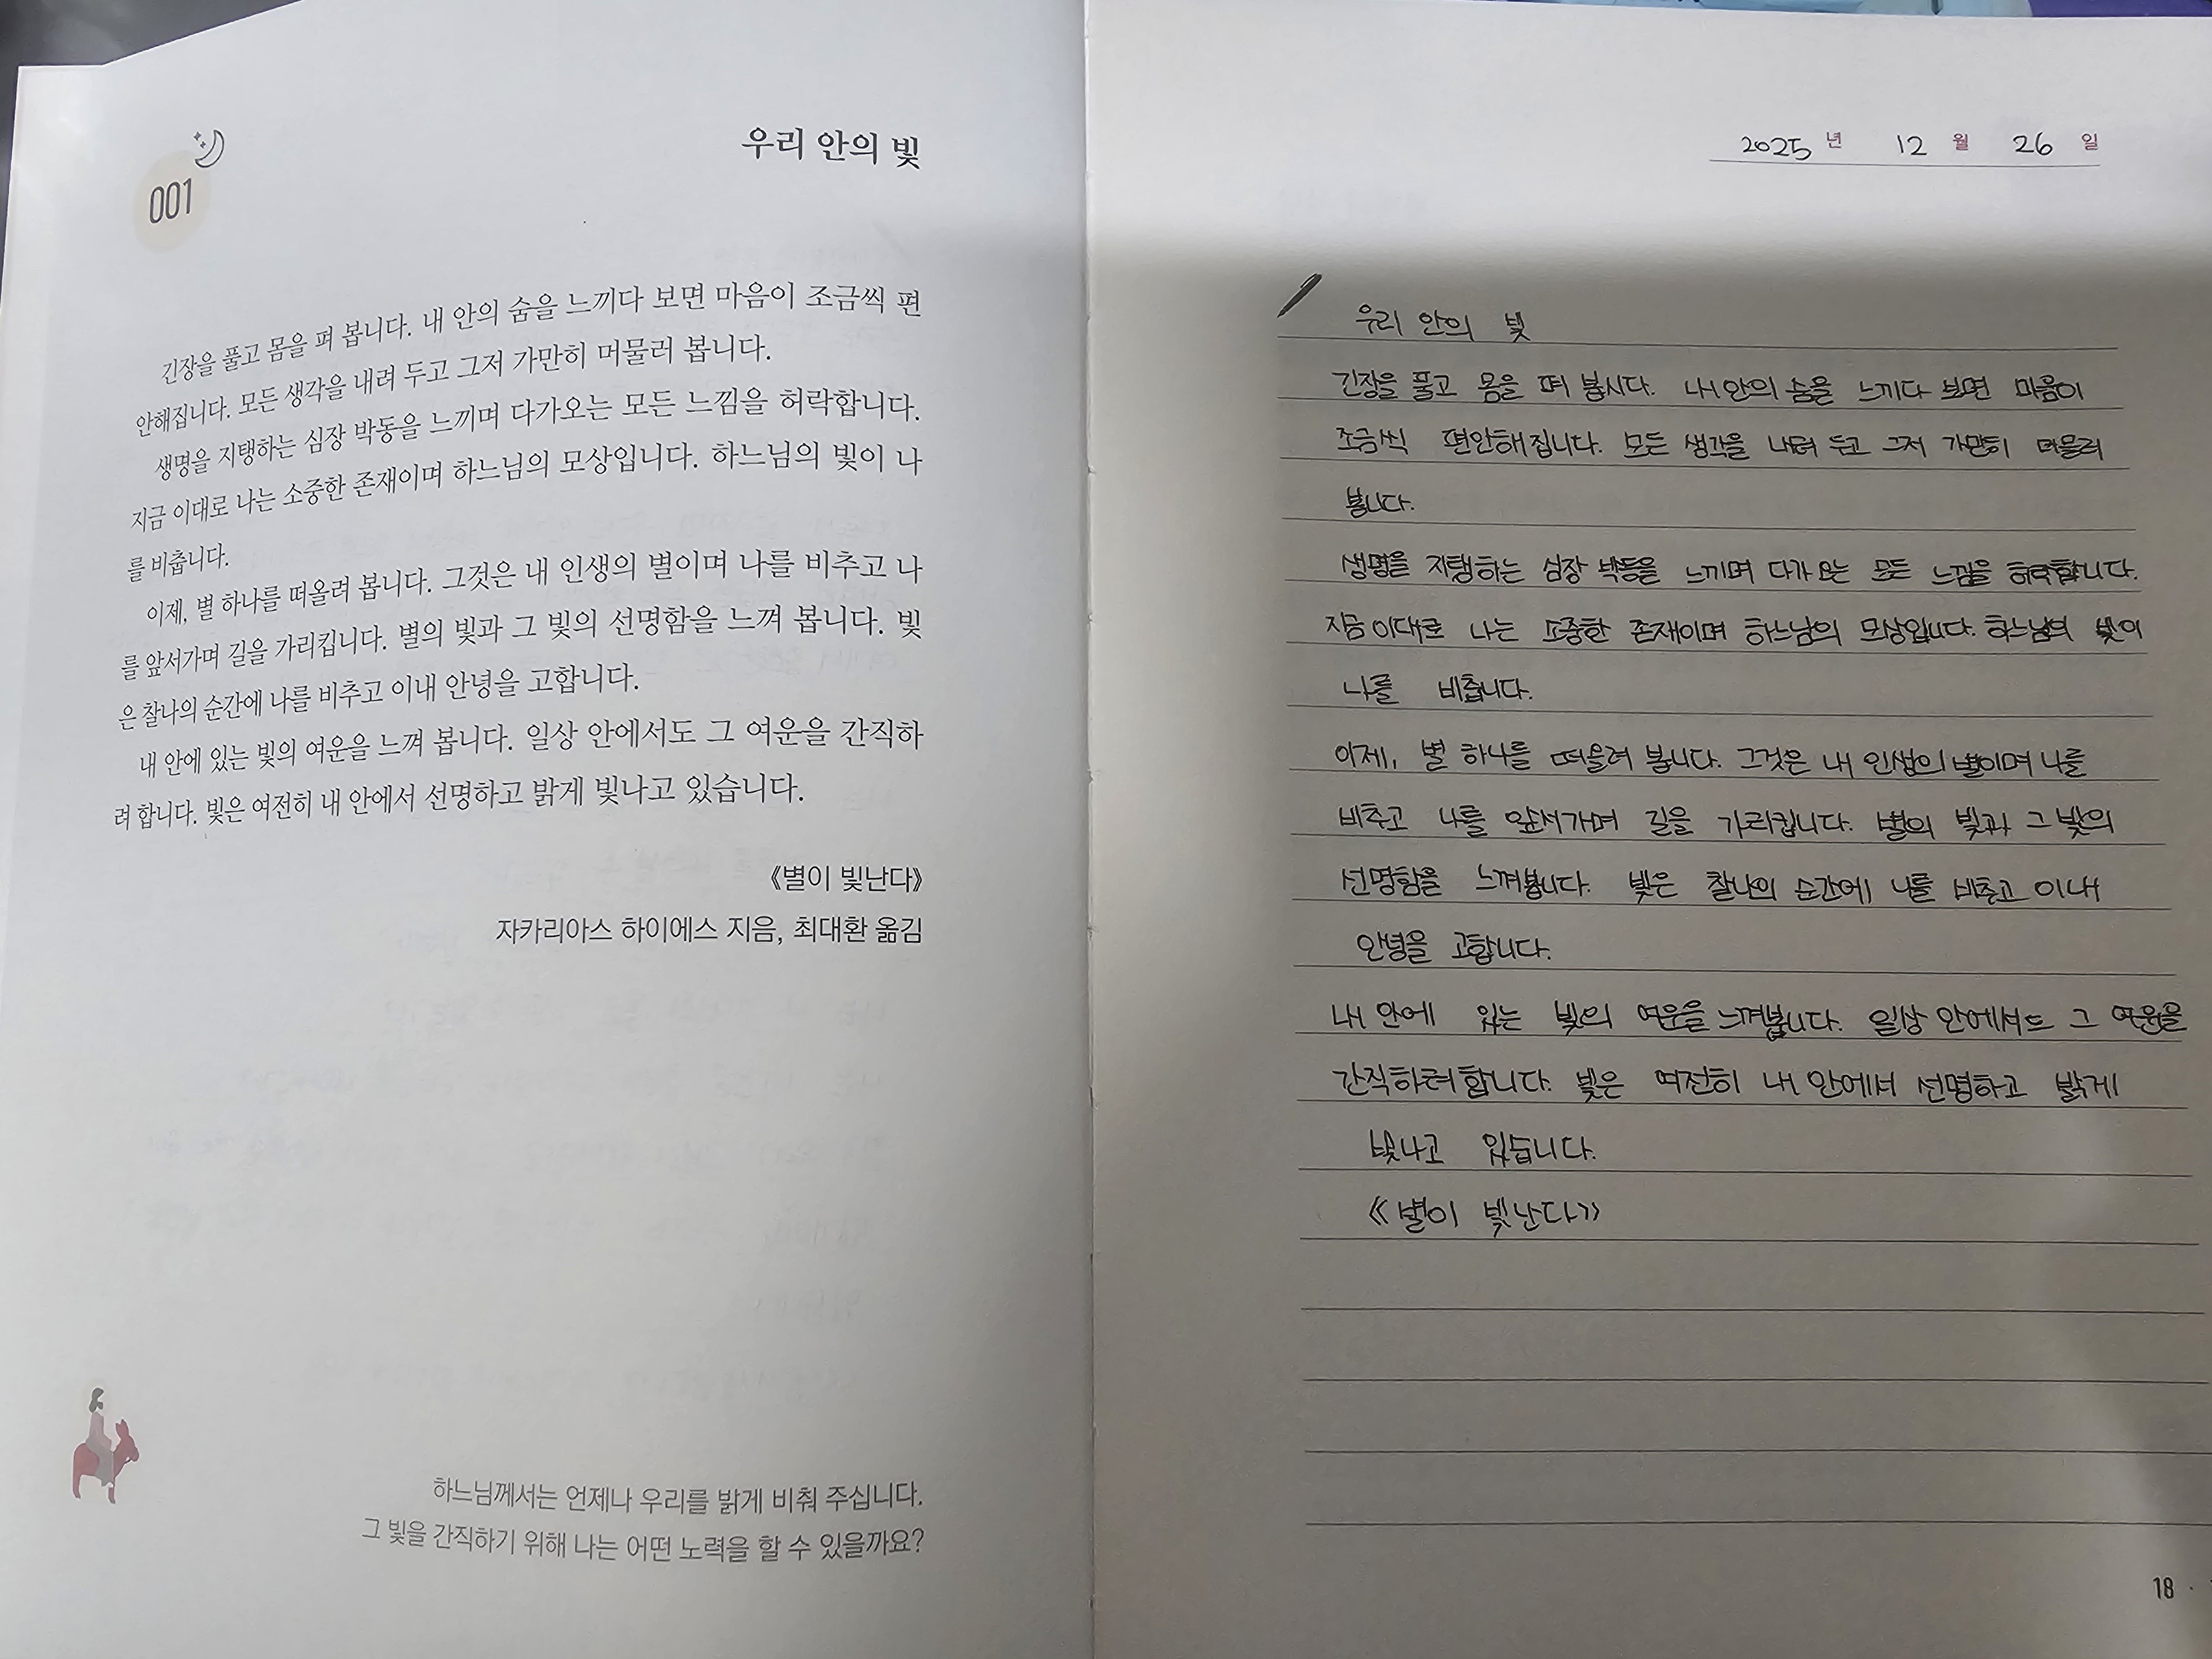 001
우리 안의 빛
긴장을 풀고 몸을 펴 봅니다. 내 안의 숨을 느끼다 보면 마음이 조금씩 편
안해집니다. 모든 생각을 내려 두고 그저 가만히 머물러 봅니다.
생명을 지탱하는 심장 박동을 느끼며 다가오는 모든 느낌을 허락합니다.
지금 이대로 나는 소중한 존재이며 하느님의 모상입니다. 하느님의 빛이 나
를 비춥니다.
이제, 별 하나를 떠올려 봅니다. 그것은 내 인생의 별이며 나를 비추고 나
를 앞서가며 길을 가리킵니다. 별의 빛과 그 빛의 선명함을 느껴 봅니다. 빛
은 찰나의 순간에 나를 비추고 이내 안녕을 고합니다.
내 안에 있는 빛의 여운을 느껴 봅니다. 일상 안에서도 그 여운을 간직하
려 합니다. 빛은 여전히 내 안에서 선명하고 밝게 빛나고 있습니다.
《별이 빛난다》
자카리아스 하이에스 지음, 최대환 옮김
하느님께서는 언제나 우리를 밝게 비춰 주십니다.
그 빛을 간직하기 위해 나는 어떤 노력을 할 수 있을까요?
2025년 12월 26일
우리 안의 빛
긴장을 풀고 몸을 펴 봅시다. 내 안의 숨을 느끼다 보면 마음이
조금씩 편안해집니다. 모든 생각을 내려 두고 그저 가만히 머물러
봅니다.
생명을 지탱하는 심장 박동을 느끼며 다가오는 모든 느낌을 허락합니다.
지금 이대로 나는 소중한 존재이며 하느님의 모상입니다. 하느님의 빛이
나를 비춥니다.
이제, 별 하나를 떠올려 봅니다. 그것은 내 인생의 별이며 나를
비추고 나를 앞서가며 길을 가리킵니다. 별의 빛과 그 빛의
선명함을 느껴봅니다. 빛은 찰나의 순간에 나를 비추고 이내
안녕을 고합니다.
내 안에 있는 빛의 여운을 느껴봅니다. 일상 안에서도 그 여운을
간직하려 합니다. 빛은 여전히 내 안에서 선명하고 밝게
빛나고 있습니다.
《별이 빛난다》
18